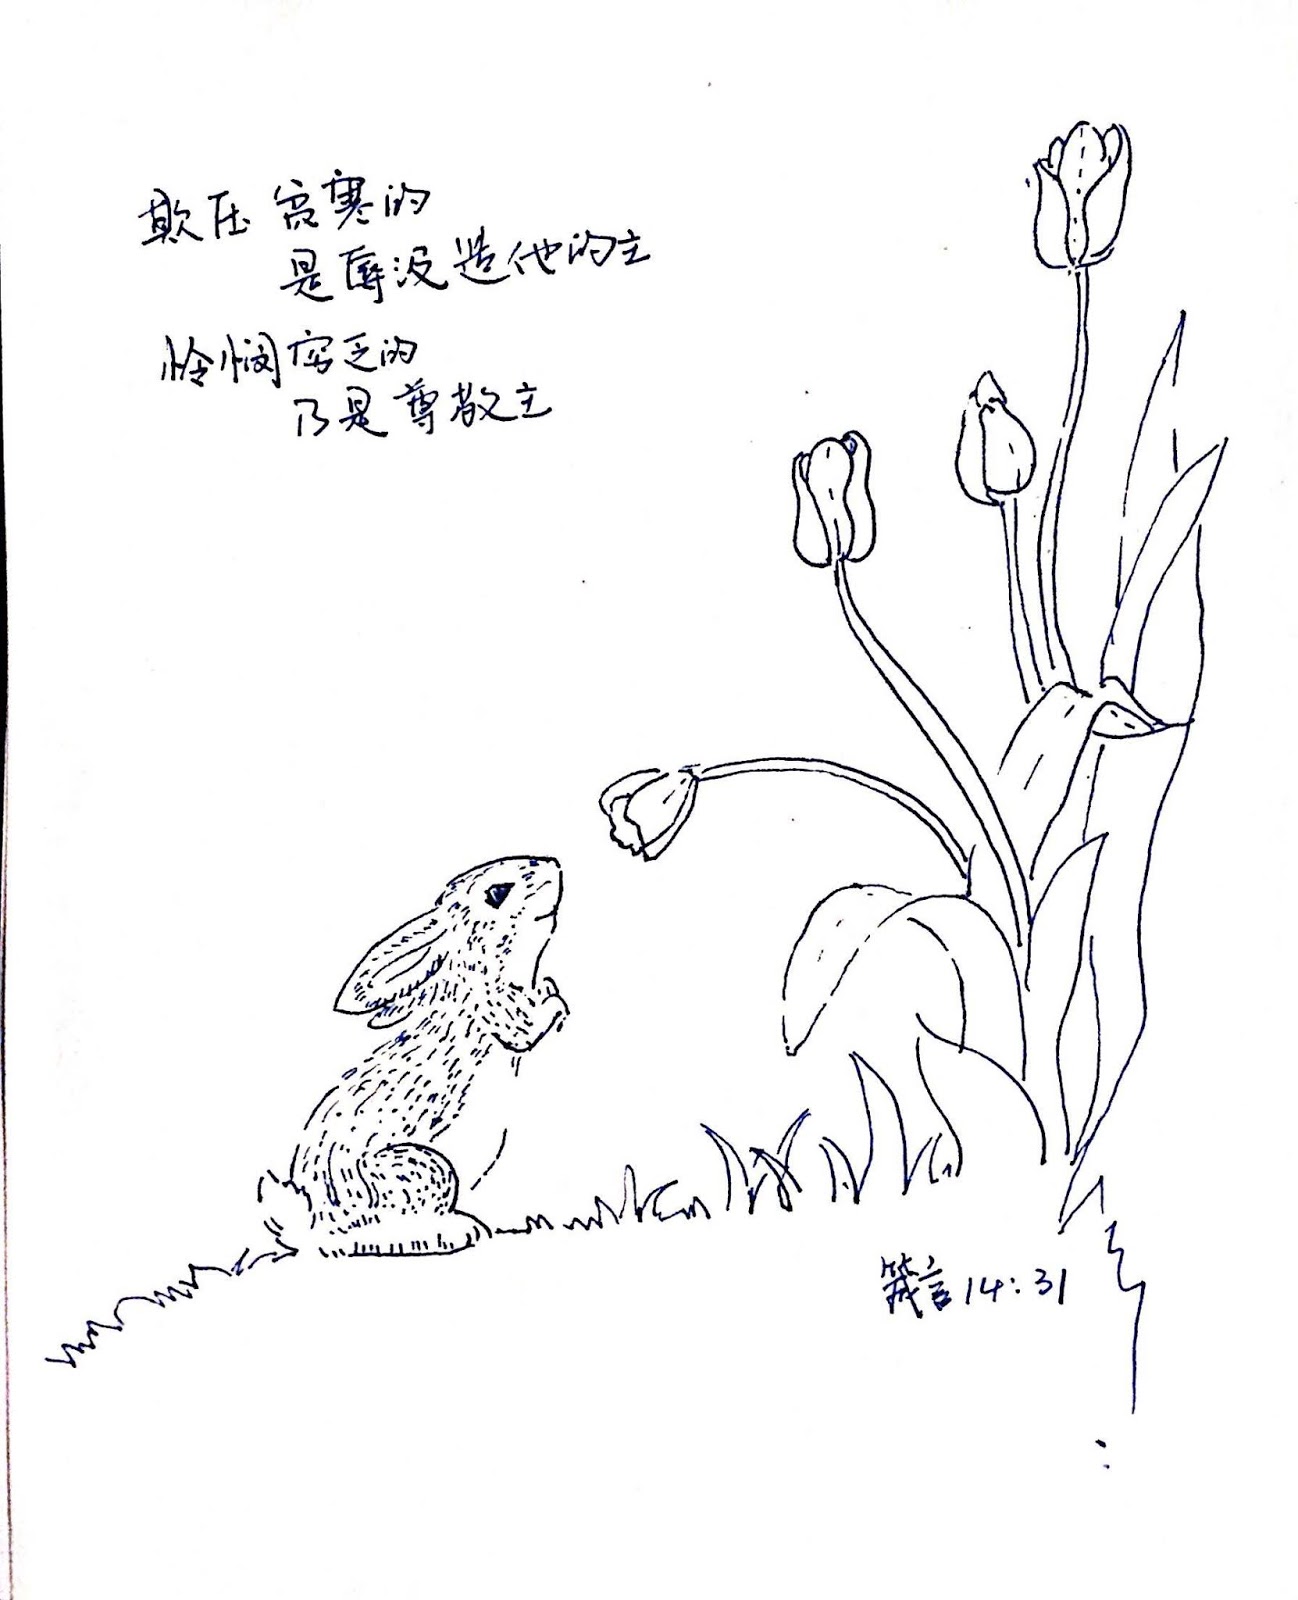 欺压贫寒的
是辱没造他的主
怜悯穷乏的
乃是尊敬主
箴言14:31